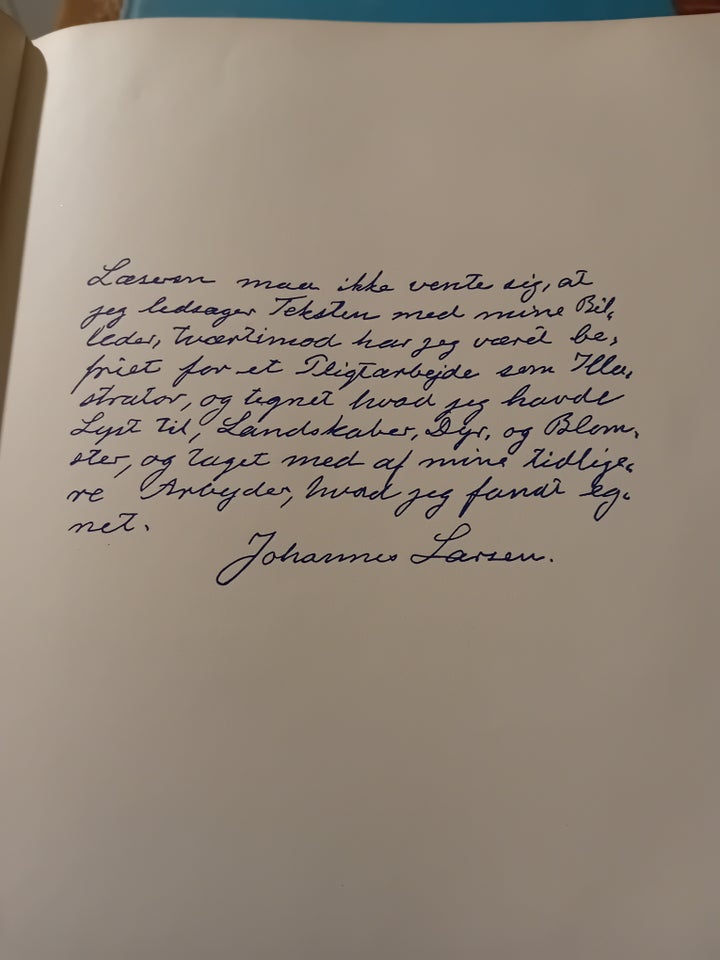 Læseren maa ikke vente sig, at
jeg ledsager Teksten med mine Bil-
leder, tværtimod har jeg været be-
friet for et Pligtarbejde som Illu-
strator, og tegnet hvad jeg havde
Lyst til, Landskaber, Dyr, og Blom-
ster, og taget med af mine tidlige-
re Arbejder, hvad jeg fandt eg-
net.
Johannes Larsen.